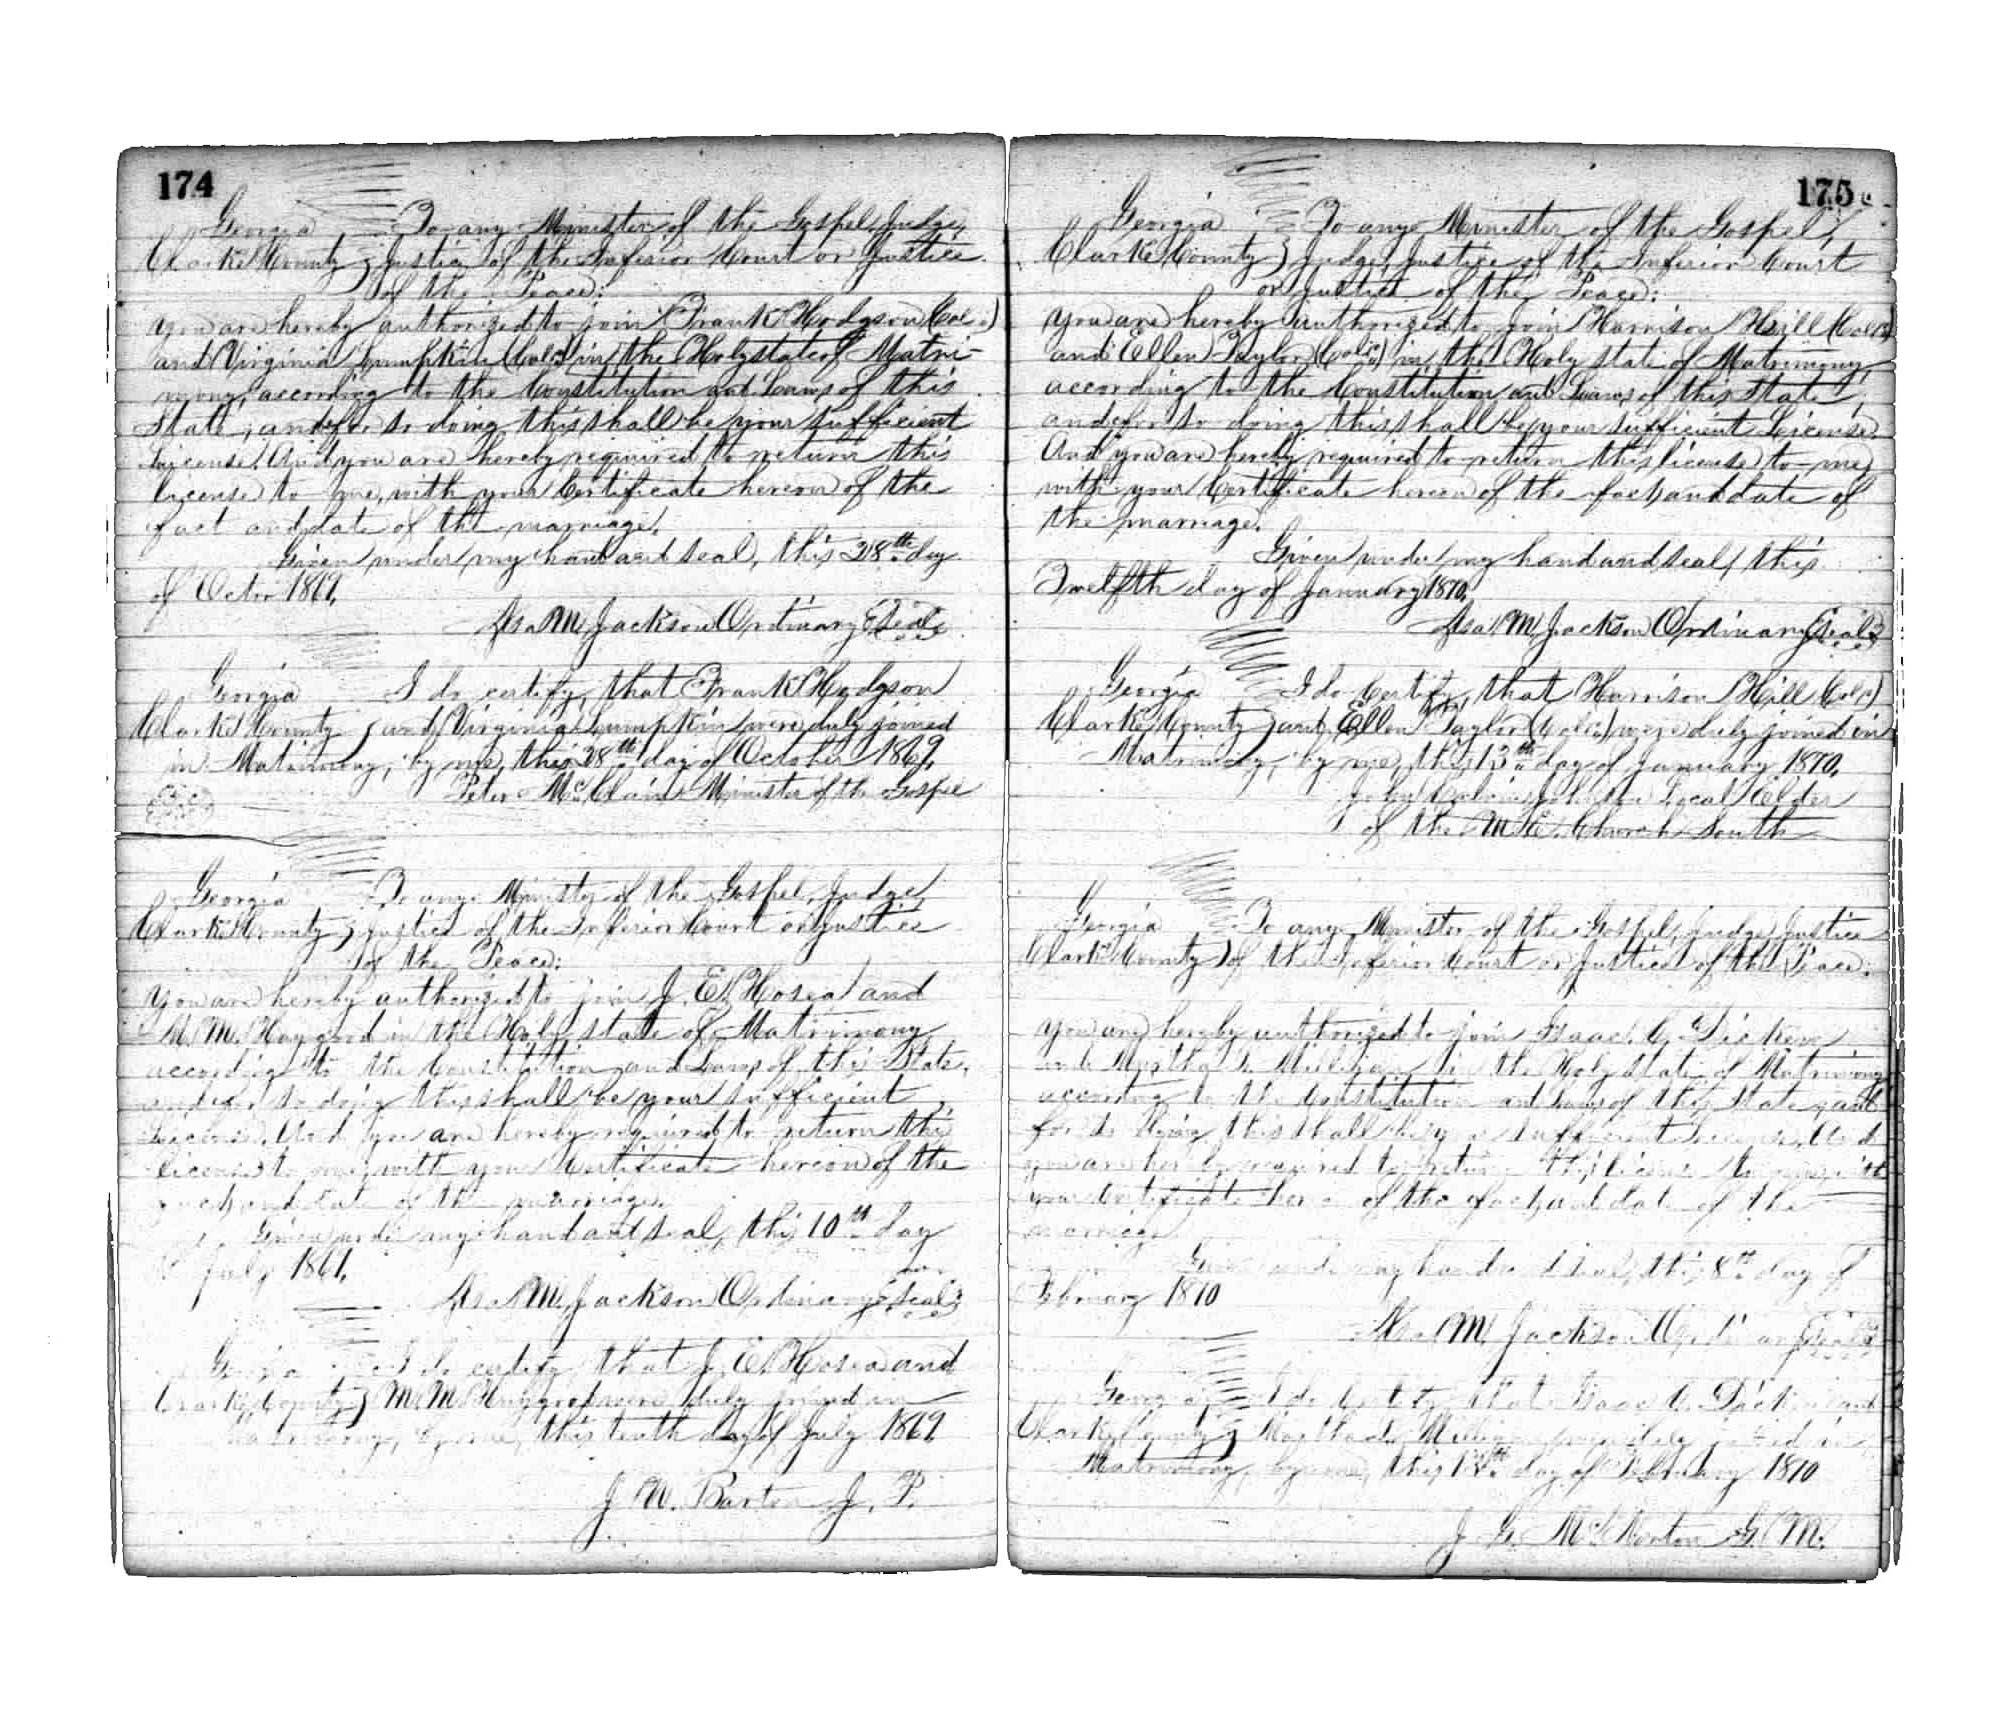 174
Georgia To any Minister of the Gospel, Judge,
Clarke County } Justice of the Inferior Court or Justice
of the Peace:
you are hereby authorized to join Frank Hodgson (Col.)
and Virginia Lumpkin (Col.) in the Holy state of Matri-
mony, according to the Constitution and Laws of this
State; and for so doing this shall be your sufficient
License. And you are hereby required to return this
license to me, with your Certificate hereon of the
fact and date of the marriage.
Given under my hand and seal, this 28th day
of Octor 1869.
Asa M. Jackson Ordinary Seal
Georgia I do certify, that Frank Hodgson
Clarke County } and Virginia Lumpkin were duly joined
in Matrimony, by me, this 28th day of October 1869.
Peter McClain Minister of the Gospel
Georgia To any Minister of the Gospel, Judge,
Clarke County } Justice of the Inferior Court or Justice
of the Peace:
you are hereby authorized to join J. E. Hosea and
M. M. Haygood in the Holy state of Matrimony
according to the Constitution and Laws of this State,
and for so doing this shall be your sufficient
License. And you are hereby required to return this
license to me, with your Certificate hereon of the
fact and date of the marriage.
Given under my hand and seal, this 10th day
of July 1869.
Asa M. Jackson Ordinary Seal
Georgia I do certify that J. E. Hosea and
Clarke County } M. M. Haygood were duly joined in
Matrimony, by me, this tenth day of July 1869
J. W. Barton J. P.
175
Georgia To any Minister of the Gospel,
Clarke County } Judge, Justice of the Inferior Court
or Justice of the Peace:
you are hereby authorized to join Harrison Hill (Cold)
and Ellen Taylor (Cold) in the Holy state of Matrimony,
according to the Constitution and Laws of this State;
and for so doing this shall be your sufficient License.
And you are hereby required to return this license to me,
with your Certificate hereon of the fact and date of
the marriage.
Given under my hand and seal, this
Twelfth day of January 1870.
Asa M. Jackson Ordinary Seal
Georgia I do Certify, that Harrison Hill (Cold)
Clarke County } and Ellen Taylor (Cold) were duly joined in
Matrimony, by me, this 13th day of January 1870.
Johnson Local Elder
of the M. E. Church South
Georgia To any Minister of the Gospel, Judge, Justice
Clarke County } of the Inferior Court or Justice of the Peace:
you are hereby authorized to join Isaac C. Dicken
and Martha Milligan in the Holy state of Matrimony
according to the Constitution and Laws of this State, and
for so doing this shall be your sufficient License. And
you are hereby required to return this license to me, with
your Certificate hereon of the fact and date of the
marriage.
Given under my hand and seal, this 8th day of
February 1870
Asa M. Jackson Ordinary Seal
Georgia I do Certify, that Isaac C. Dicken and
Clarke County } Martha Milligan were duly joined in
Matrimony, by me, this day of February 1870
J. G. McNorton G. M.